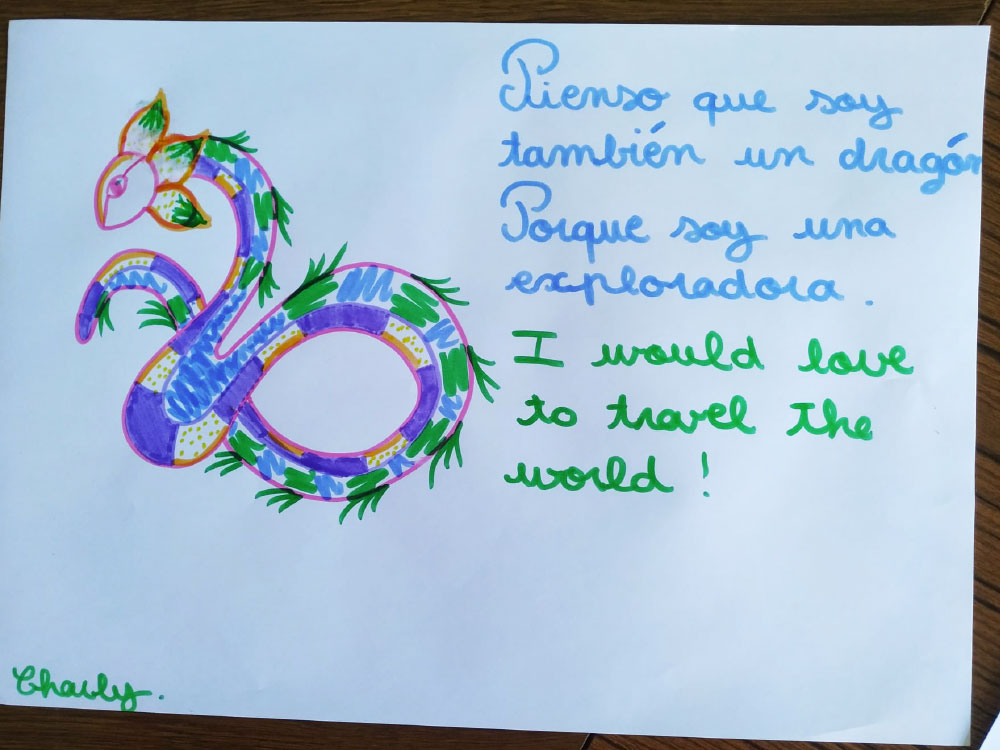 Pienso que soy
también un dragón
Porque soy una
exploradora.
I would love
to travel the
world !
Charly.